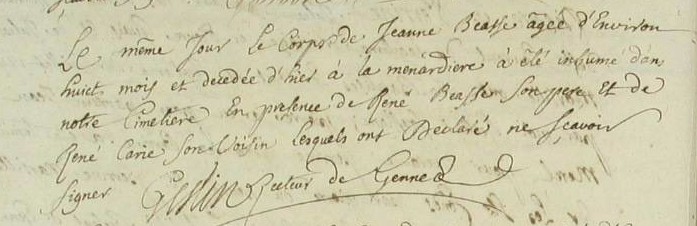 Le même Jour le Corps de Jeanne Beasse âgée d'Environ
huict mois et decedée d'hier à la menardiere à été inhumé dans
notre Cimetiere En presence de René Beasse son pere Et de
René Carie son Voisin lesquels ont Déclaré ne sçavoir
signer Recteur de Gennes